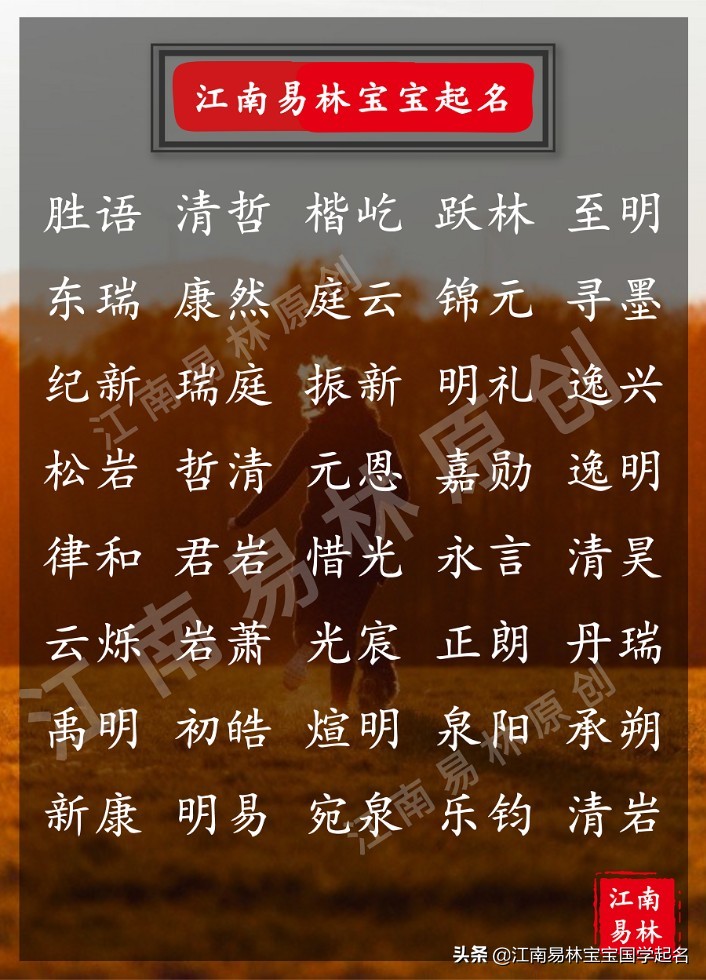 江南易林宝宝起名
胜语 清哲 楷屹 跃林 至明
东瑞 康然 庭云 锦元 寻墨
纪新 瑞庭 振新 明礼 逸兴
松岩 哲清 元恩 嘉勋 逸明
律和 君岩 惜光 永言 清昊
云烁 岩萧 光宸 正朗 丹瑞
禹明 初皓 煊明 泉阳 承朔
新康 明易 宛泉 乐钧 清岩
江南易林原创
江南易林原创
江南易林原创
江南
易林
头条 @江南易林宝宝国学起名